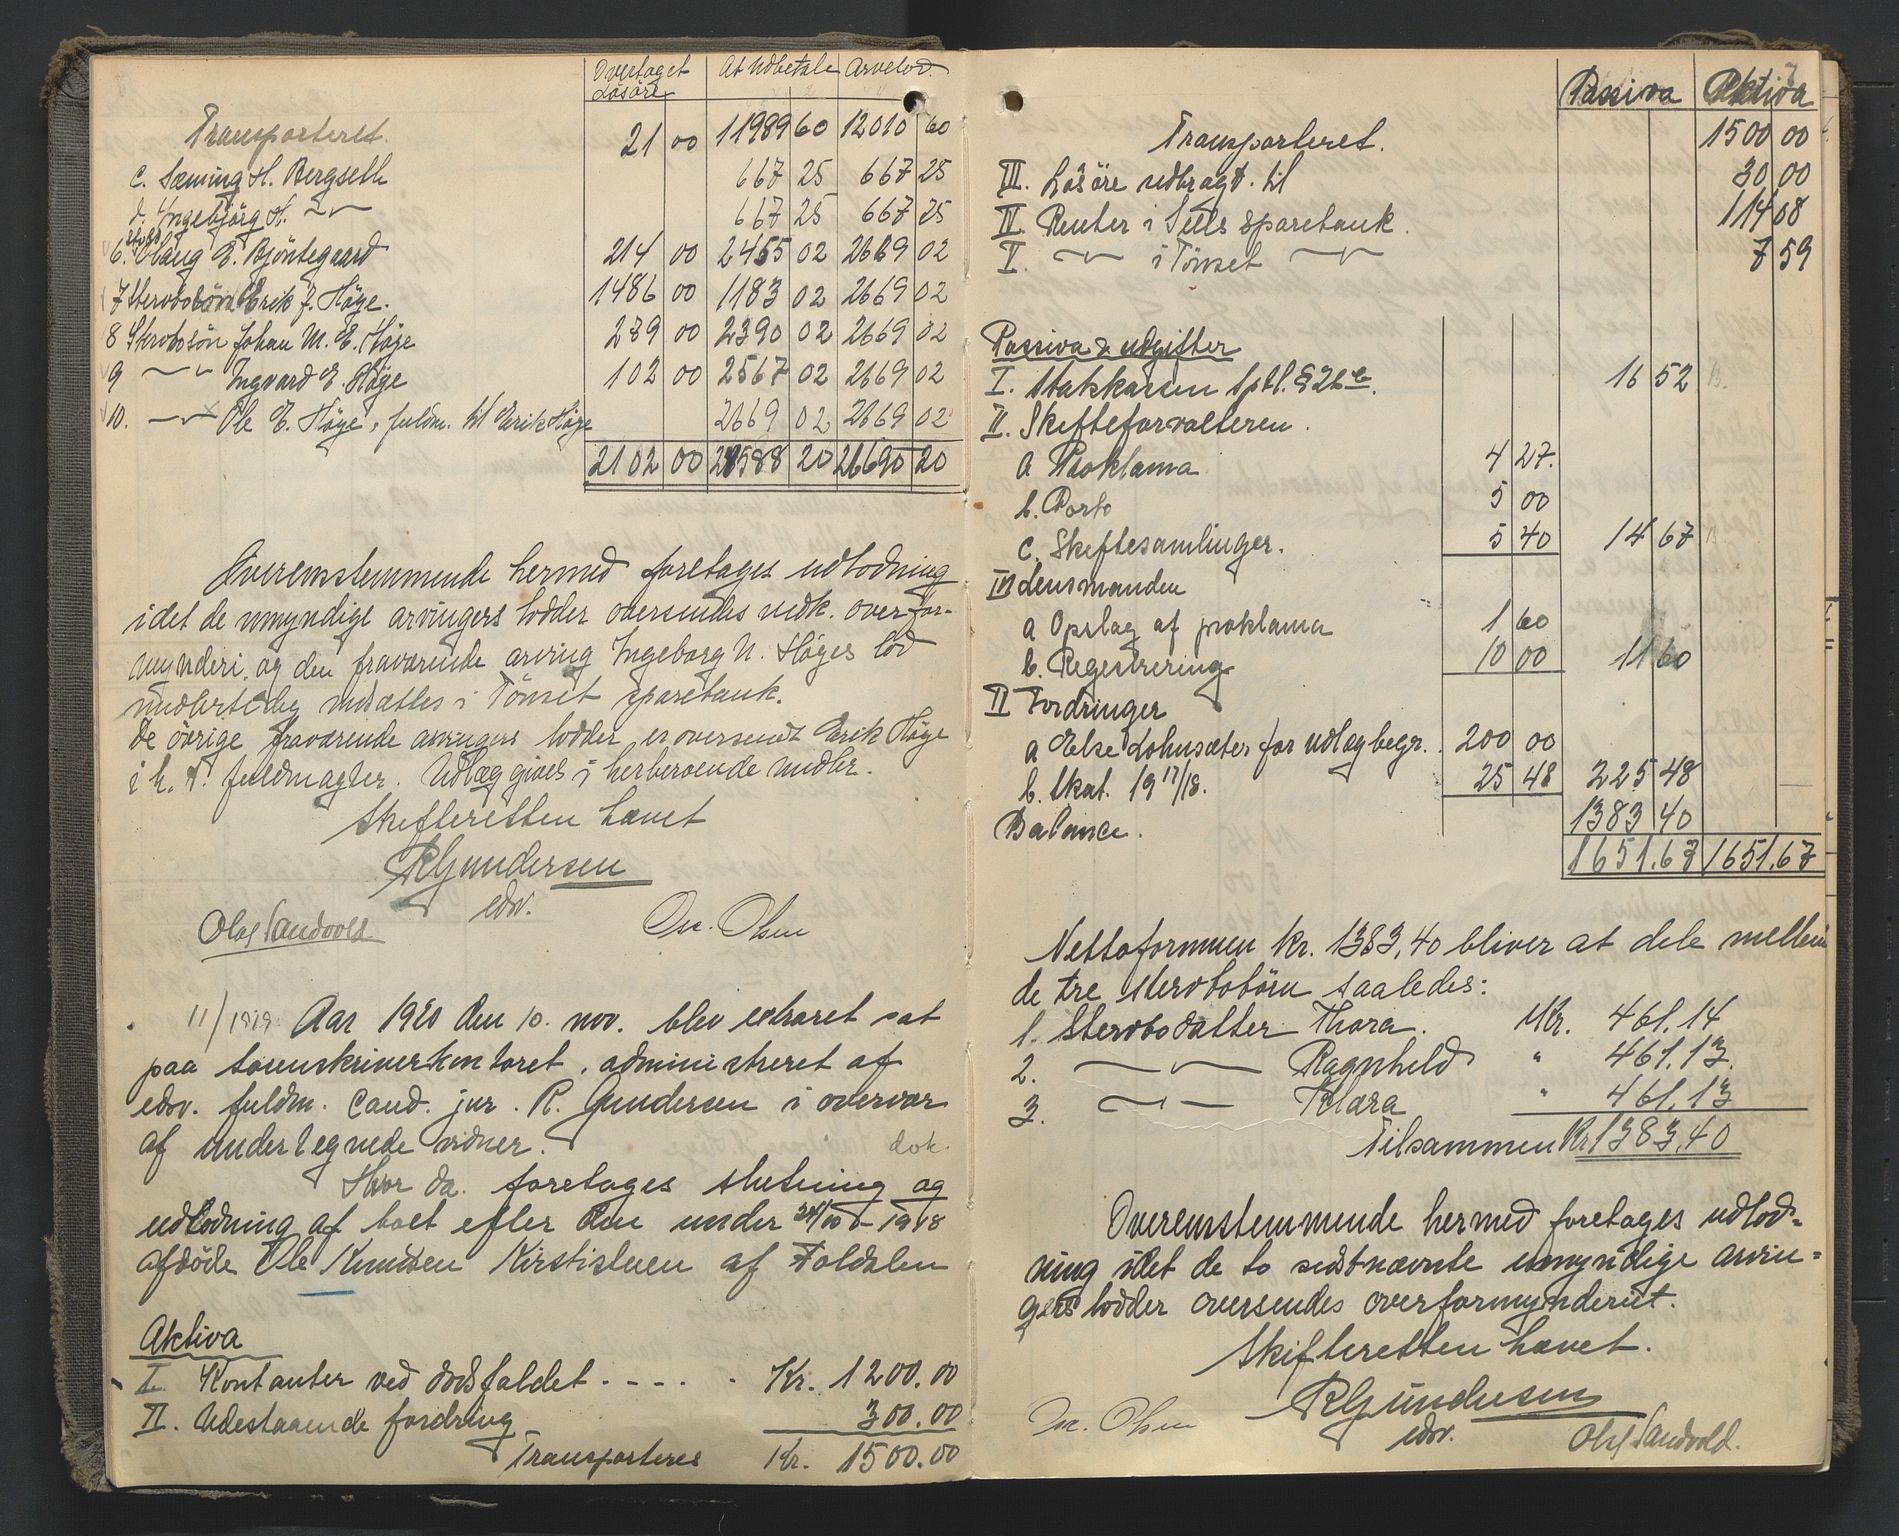 Overtaget At udbetale Arvelod.
Løsøre
Transporteret. 21 00 11989 60 12010 60
c. Sæming H. Bergseth 667 25 667 25
d. Ingebjörg H. —"— 667 25 667 25
6. Olaug E. Bjöntegaard 214 00 2455 02 2669 02
7 Stervbosön Erik J. Höge. 1486 00 1183 02 2669 02
8 Stervbosön Johan M. E. Höge 279 00 2390 02 2669 02
9 —"— Ingvard E. Höge 102 00 2567 02 2669 02
10. —"— Ole E. Höge, fuldm. til Erik Höge 2669 02 2669 02
2102 00 24588 20 26690 20
Overensstemmende hermed foretages udlodning
idet de umyndige arvingers lodder oversendes vedk. overfor-
mynderi, og den fraværende arving Ingeborg N. Höges lod
midlertidig indsættes i Tönset sparebank.
De övrige fraværende arvingers lodder er oversendt Erik Höge
i h. t. fuldmagter. Udlæg gives i herberoende midler.
Skifteretten hævet
R Gundersen
edsv.
Olaf Sandvold Joe. Olsen
11/1919 Aar 1920 den 10. nov. blev extraret sat
paa sorenskriverkontoret, administreret af
edsv. fuldm. cand. jur. R. Gundersen i overvær
af undertegnede vidner. dok.
Hvor da. foretages slutning og
udlodning af boet efter den under 24/10 1918
afdöde Ole Knudsen Kirstistuen af Foldalen
Aktiva
I. Kontanter ved dödsfaldet . - - - . . Kr. 1200.00
II. Udestaaende fordring 300.00
Transporteres Kr. 1500.00
Passiva Aktiva
Transporteret. 1500 00
III. Lösöre udbragt til 30 00
IV. Renter i Sells sparebank. 114 08
V. —"— i Tönset —"— 7 59
Passiva & udgifter
I. Statkassen Sptl. § 26 16 52
II. Skifteforvalteren.
a Proklama 4 27.
b. Porto 5 00
c. Skiftesamlinger. 5 40 14 67
III Lensmanden
a Opslag af proklama 1 60
b. Regestrering 10 00 11 60
IV Fordringer
a Else Lohnsæter for udlæg begr. 200 00
b. Skat. 19 17/18. 25 48 225 48
Balance. 1383 40
1651.67 1651.67
Nettoformuen kr. 1383,40 bliver at dele mellem
de tre stervbobörn saaledes:
1. Stervbodatter Thora. Kr. 461.14
2. —"— Ragnhild " 461.13.
3. —"— Klara " 461.13
Tilsammen Kr. 1383,40
Overensstemmende hermed foretages udlod-
ning idet de to sidstnævnte umyndige arvin-
gers lodder oversendes overformynderiet.
Skifteretten hævet.
R Gundersen
Joe. Olsen edsv. Olaf Sandvold.